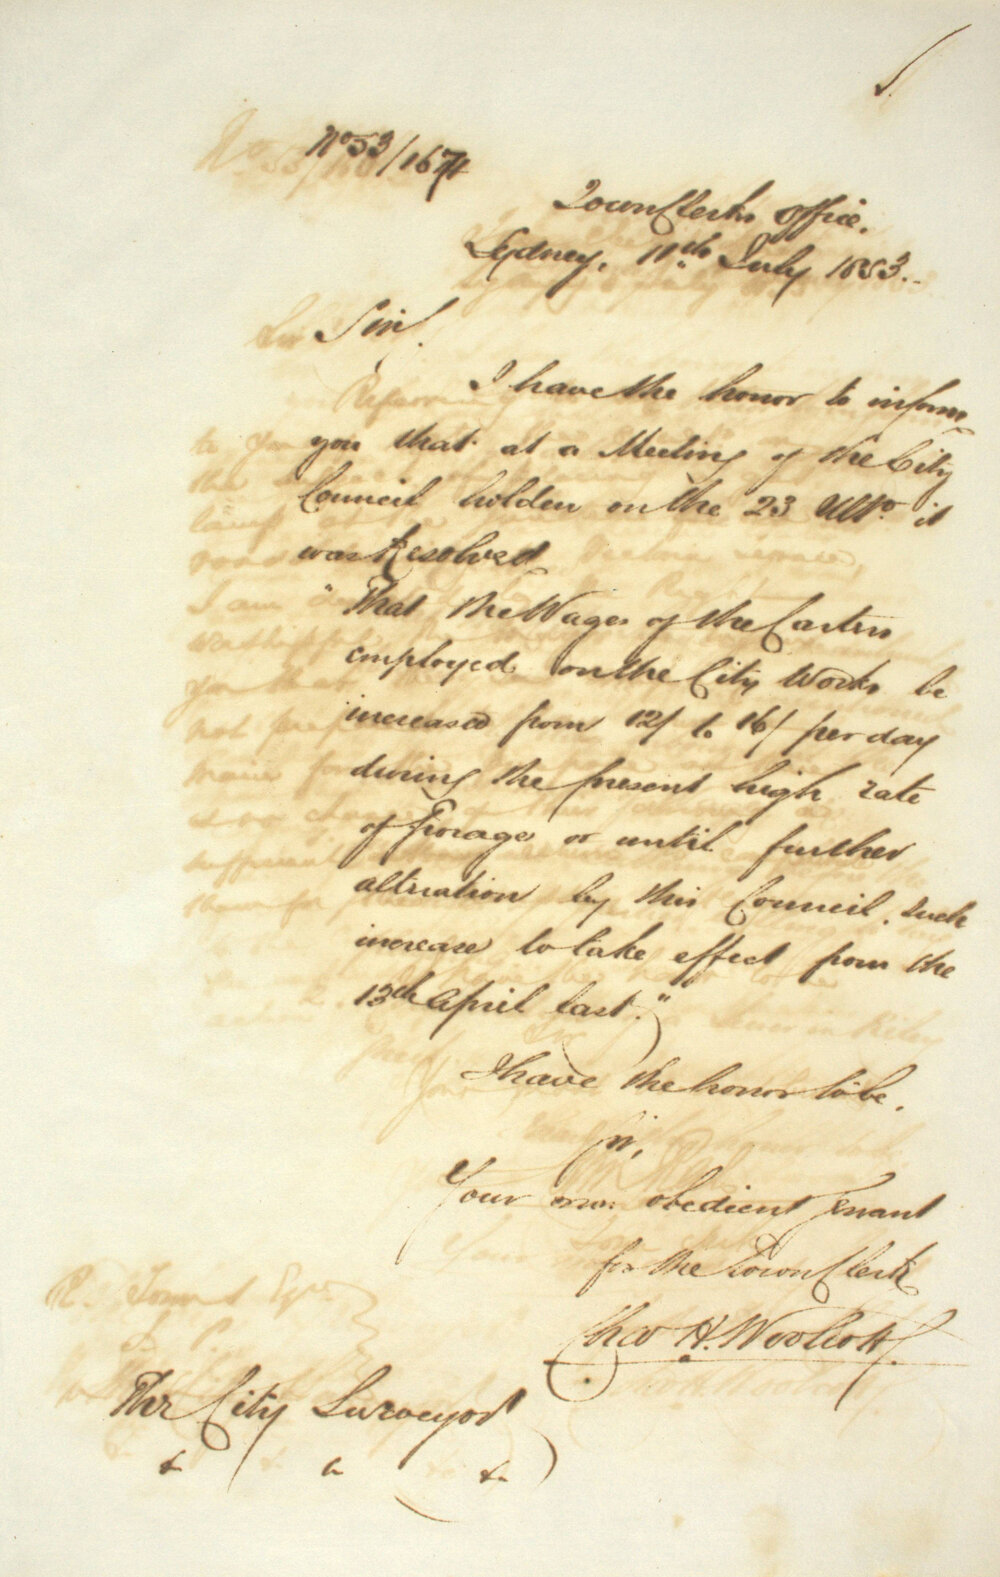 No 53/167
Town Clerks Office.
Sydney, 11th July 1853.
Sir,
I have the honor to inform
you that at a Meeting of the City
Council holden on the 23 Ulto. it
was Resolved
"That the Wages of the Carters
employed on the City Works be
increased from 12/ to 16/ per day
during the present high rate
of Forage or until further
alteration by this Council, such
increase to take effect from the
13th April last."
I have the honor to be,
Sir,
Your obedient Servant
for the Town Clerk
Chas H. Woolcott
The City Surveyor
& & &